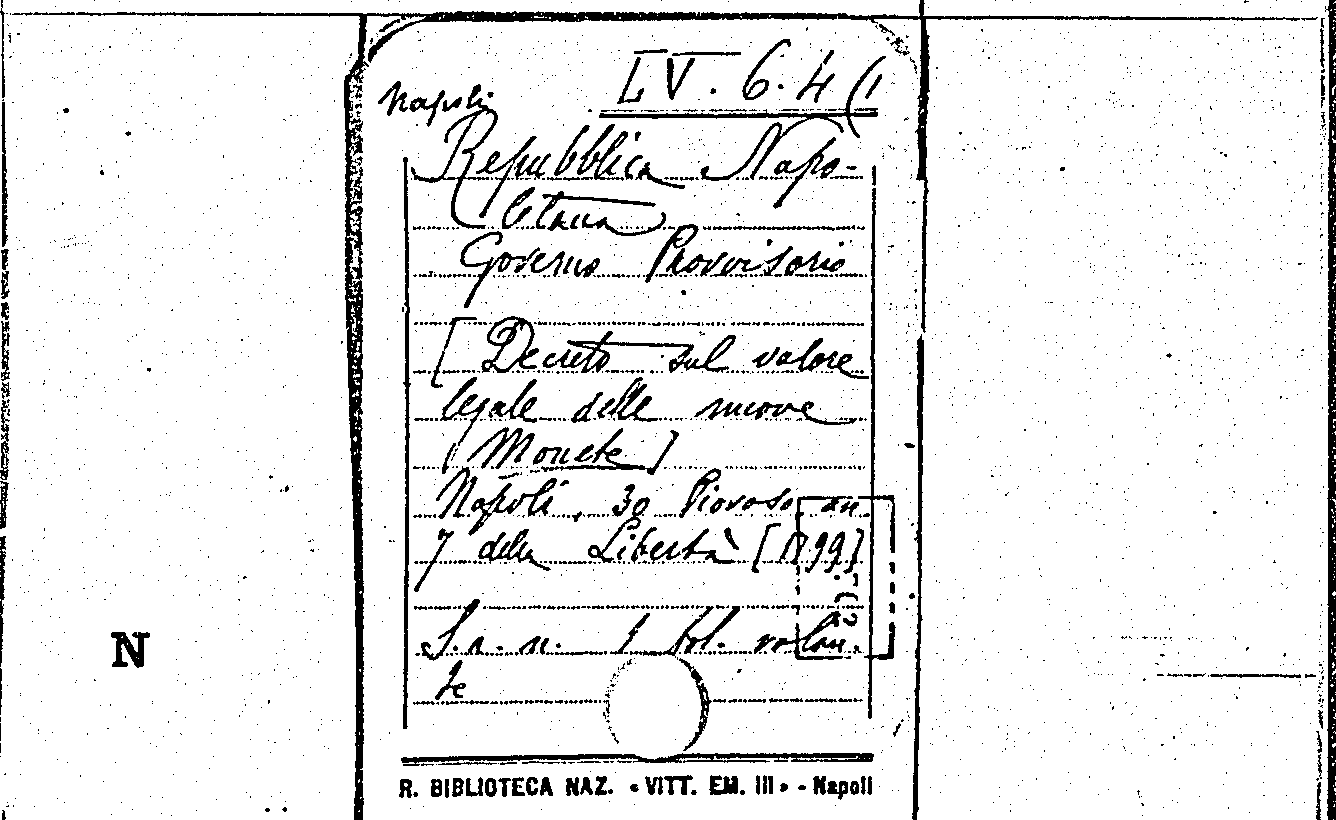 Napoli
LV. 6. 4 (1
Repubblica Napo-
letana
Governo Provvisorio
[Decreto sul valore
legale delle nuove
Monete]
Napoli, 30 Piovoso an.
7 della Libertà [1799]
S. n. n. 1 fol. volan.
te
N
R. BIBLIOTECA NAZ. «VITT. EM. III» - Napoli